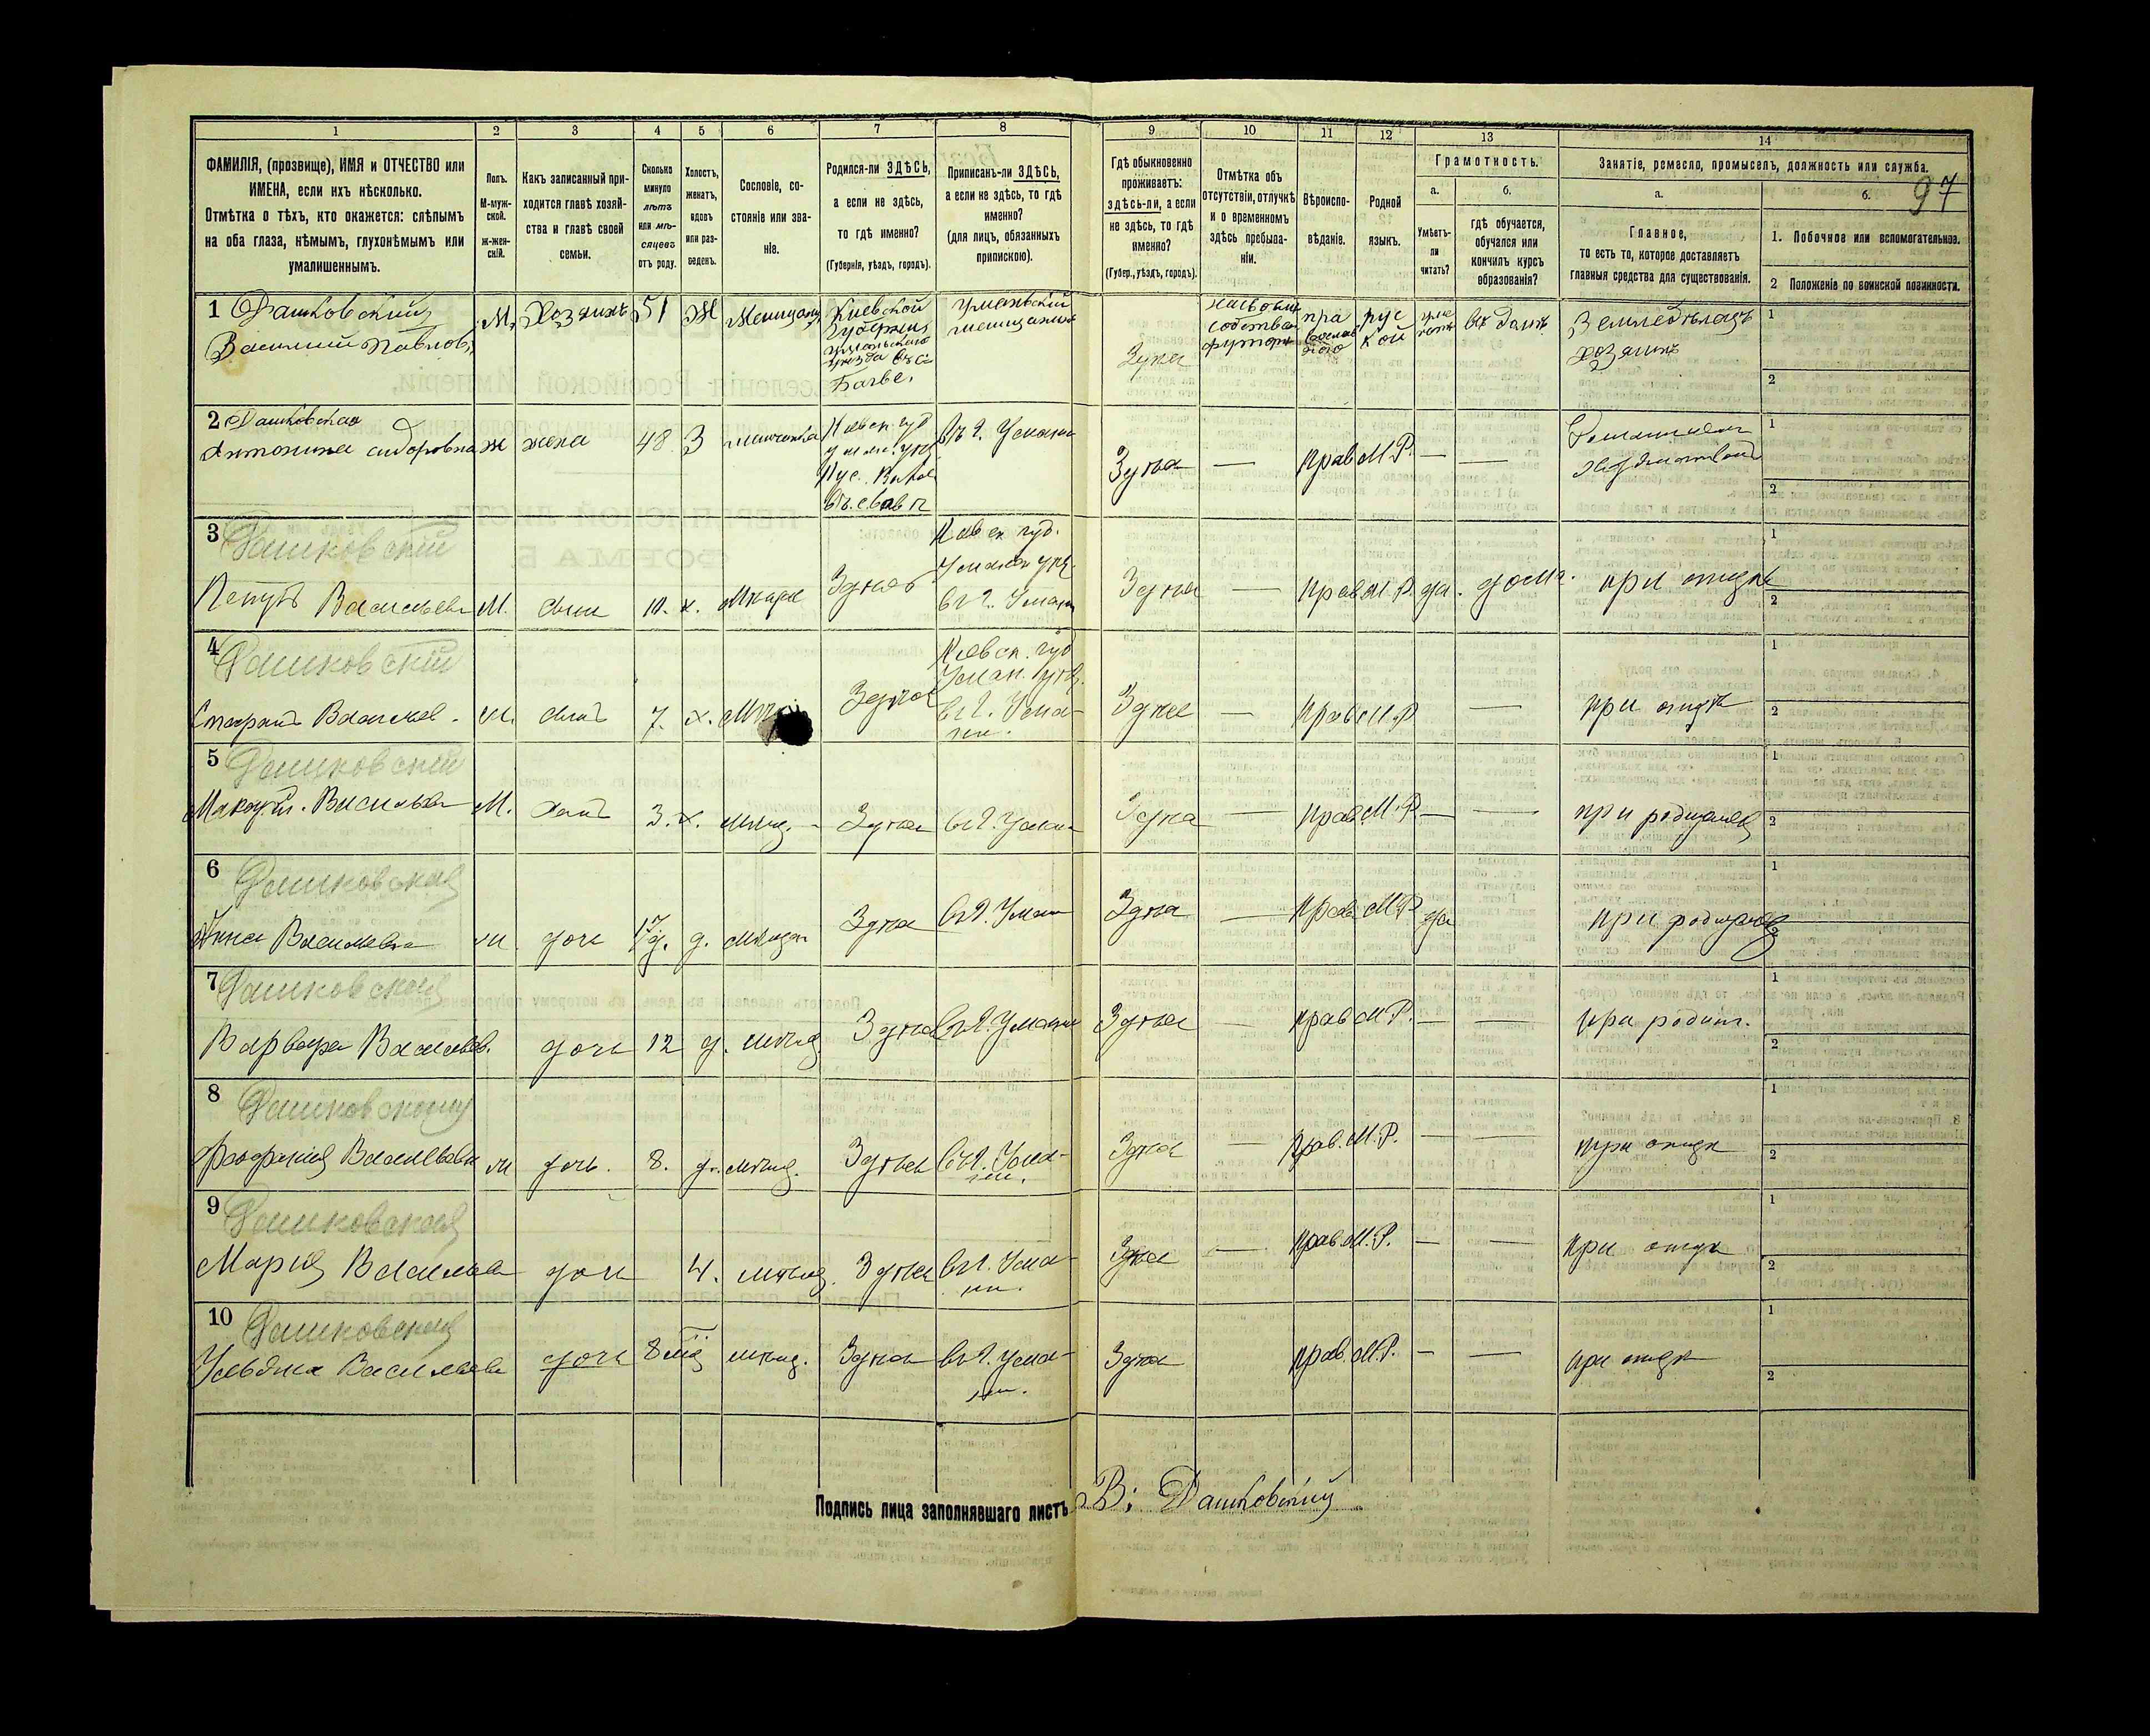 97
1
2
3
4
5
6
7
8
9
10
11
12
13
14
ФАМИЛІЯ, (прозвище), ИМЯ и ОТЧЕСТВО или
ИМЕНА, если ихъ нѣсколько.
Отмѣтка о тѣхъ, кто окажется: слѣпымъ
на оба глаза, нѣмымъ, глухонѣмымъ или
умалишеннымъ.
Полъ.
М-муж-
ской.
Ж-жен-
скій.
Какъ записанный при-
ходится главѣ хозяй-
ства и главѣ своей
семьи.
Сколько
минуло
лѣтъ
или мѣ-
сяцевъ
отъ роду.
Холостъ,
женатъ,
вдовъ
или раз-
веденъ.
Сословіе, со-
стояніе или зва-
ніе.
Родился-ли ЗДѢСЬ,
а если не здѣсь,
то гдѣ именно?
(Губернія, уѣздъ, городъ).
Приписанъ-ли ЗДѢСЬ,
а если не здѣсь, то гдѣ
именно?
(для лицъ, обязанныхъ
припискою).
Гдѣ обыкновенно
проживаетъ:
здѣсь-ли, а если
не здѣсь, то гдѣ
именно?
(Губер., уѣздъ, городъ).
Отмѣтка объ
отсутствіи, отлучкѣ
и о временномъ
здѣсь пребыва-
ніи.
Вѣроиспо-
вѣданіе.
Родной
языкъ.
Грамотность.
а.
Умѣетъ-
ли
читать?
б.
гдѣ обучается,
обучался или
кончилъ курсъ
образованія?
Занятіе, ремесло, промыселъ, должность или служба.
а.
Главное,
то есть то, которое доставляетъ
главныя средства для существованія.
б.
1. Побочное или вспомогательное.
2 Положеніе по воинской повинности.
1 Дашковский
Василий Павлов
М. Хозяинъ 51 Ж Мещанинъ
Киевской
Губернии
уманьского
уезда въ с
Багве.
уманьский
мещанинъ
Здесь
собствен
футоръ
пра
вослав
ного
рус
кой
въ домѣ
Земледѣлецъ
хозяинъ
1
2
2 Дашковская
Антонина Сидоровна ж жена 48 З мещанка
Киевск. губ
Въ г. Умани
Здѣсь — Прав М.Р. — —
1
2
3 Дашковскій
Васильевъ М. сынъ 10. х.
Здѣсь
Киевск. губ.
Уманск. уѣз.
въ г. Умани
Здѣсь — Прав М.Р. да. дома. при отцѣ
1
2
4 Дашковскій
Васильев. М. сынъ 7. х.
Здѣсь
Киевск. губ
Уман. уѣз.
въ г. Ума-
ни.
Здѣсь — Прав М.Р — при отцѣ
1
2
5 Дашковскій
Васильев М. сынъ 3. х. мѣщ. Здѣсь въ г. Умани
Здѣсь — Прав М.Р. — — при родителяхъ
1
2
6 Дашковская
Анна Васильевна дочь 17 д. мѣщан Здѣсь въ г. Умани
Здѣсь — Прав М.Р. да при родителяхъ
1
2
7 Дашковская
Варвара Васильев. дочь 12 д. мѣщ Здѣсь въ г. Умани
Здѣсь — прав М.Р. — — при родит.
1
2
8
Васильевна дочь. 8. д. мѣщ. Здѣсь въ г. Ума-
ни.
Здѣсь — Прав. М.Р. — — при отцѣ
1
2
9 Дашковская
Мария Васильев дочь 4. мѣщ. Здѣсь въ г. Ума-
ни.
Здѣсь — Прав. М.Р. — — при отцѣ
1
2
10 Дашковская
Ульяна Васильева дочь 8 мѣщ. Здѣсь въ г. Ума-
ни.
Здѣсь Прав. М.Р. — — при отцѣ
1
2
Подпись лица заполнявшаго листъ В: Дашковский